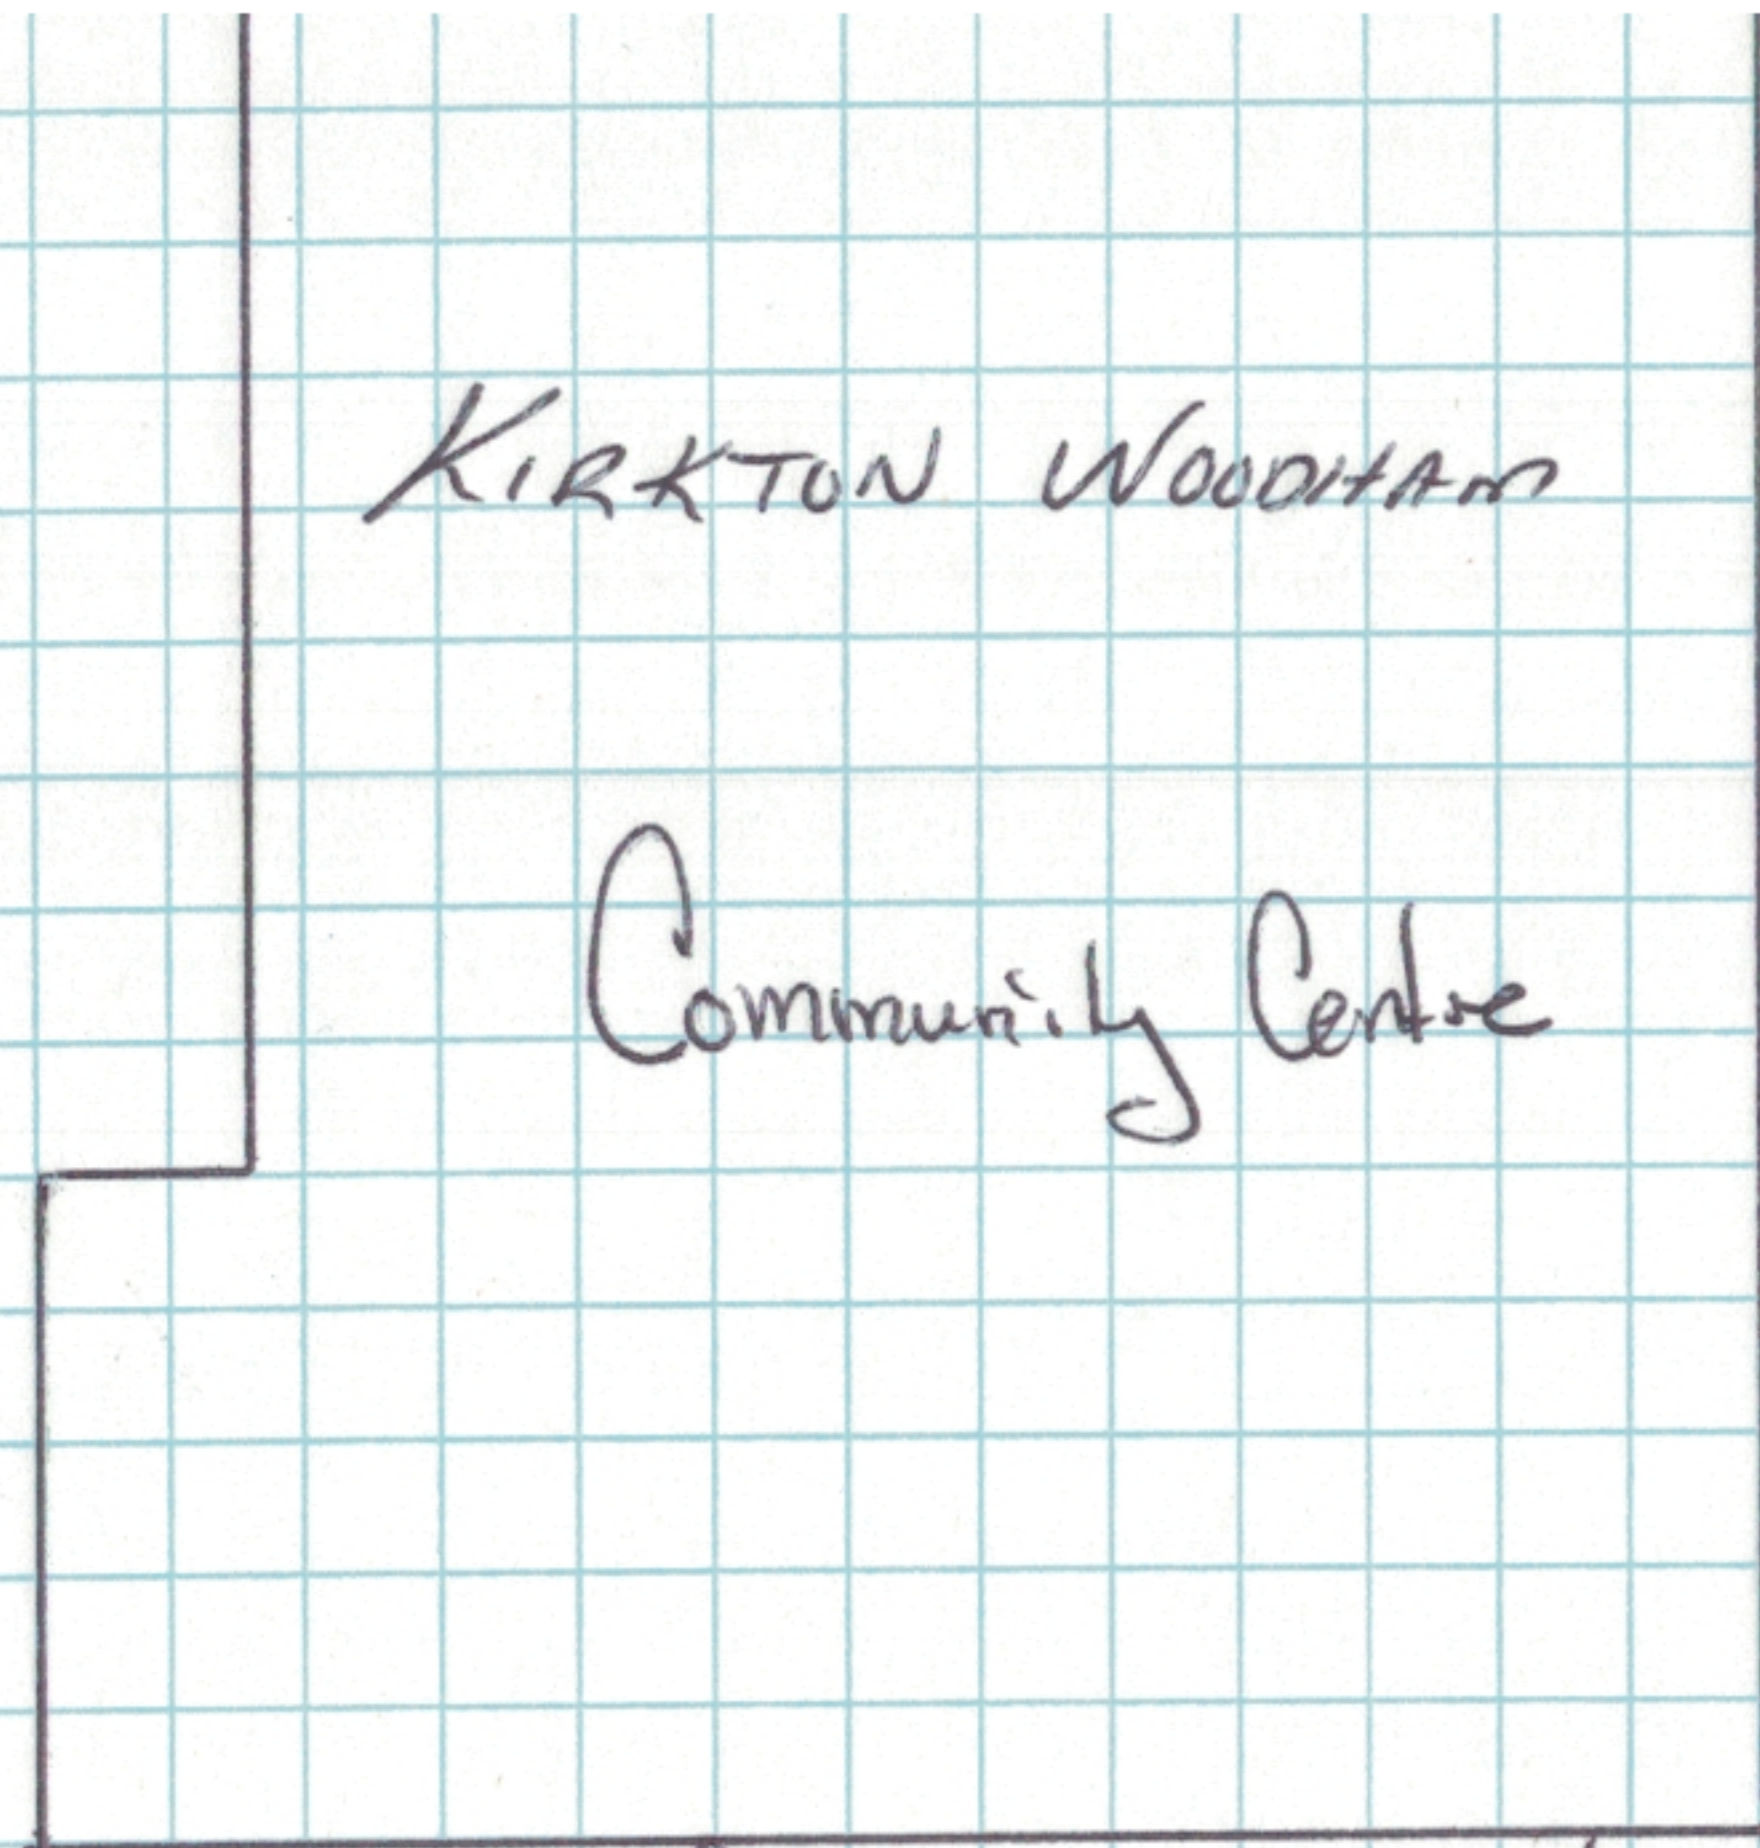 KIRKTON WOODHAM
Community Centre